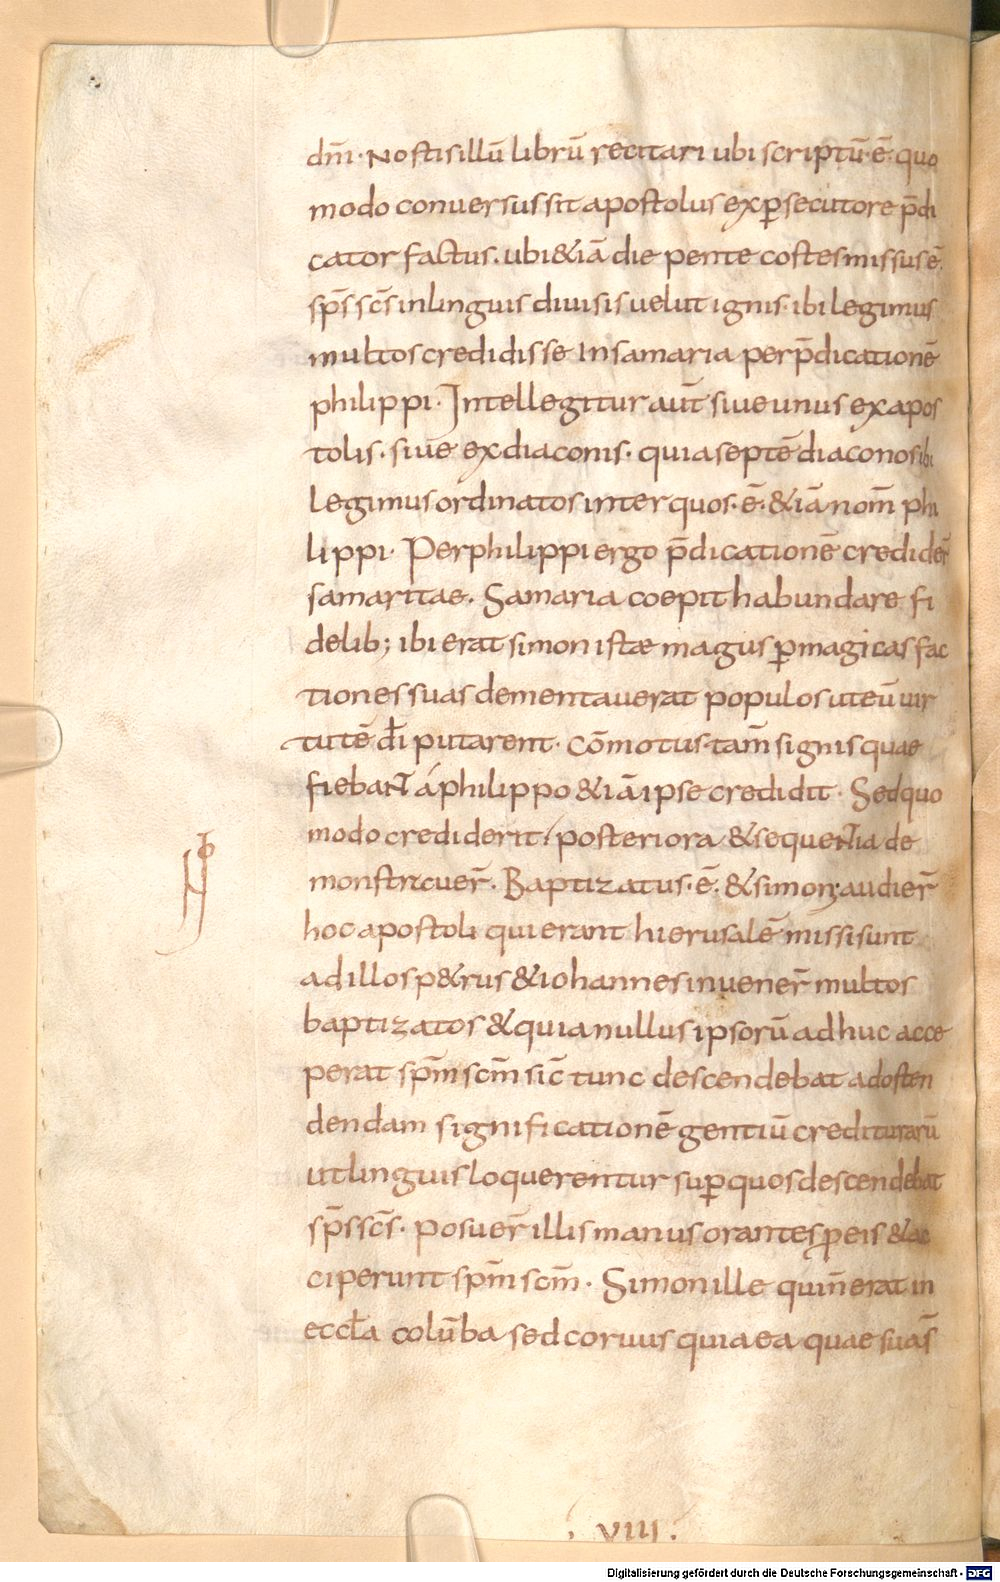 dm̄· Nostis illū librū recitari ubi scriptū·ē· quo
modo conuersus sit apostolus ex p̱secutore p̄di
cator factus. ubi & iā die pentecostes missus ē.
sp̄s sc̄s in linguis diuisis uelut ignis· ibi legimus
multos credidisse In samaria per p̄dicationē
philippi· Intellegitur aut̄ siue unus ex apos
tolis. siue ex diaconis· quia septē diaconos ibi
legimus ordinatos inter quos·ē· & iā nom̄ phi
lippi· Per philippi ergo p̄dicationē credider̄
samaritae. Samaria coepit habundare fi
delib; ibi erat simon istae magus p̱ magicas fac
tiones suas dementauerat populos ut eū uir
tutē dī putarent· Cōmotus tam̄ signis quae
fiebant á philippo & iā ipse credidit· Sed quo
modo crediderit, posteriora & sequentia de
monstrauer̄. Baptizatus·ē· & simon; audier̄
hoc apostoli qui erant hierusalē missi sunt
ad illos p&rus & iohannes inuener̄ multos
baptizatos & quia nullus ipsorū adhuc acce
perat sp̄m sc̄m sic̄ tunc descendebat ad osten
dendam significationē gentiū crediturarū
ut linguis loquerentur sup̱ quos descendebat
sp̄s sc̄s· posuer̄ illis manus orantes p̱ eis & ac
ciperunt sp̄m sc̄m· Simon ille qui n̄ erat in
eccƚa colūba sed coruus quia ea quae suas̄
. VIII .
Digitalisierung gefördert durch die Deutsche Forschungsgemeinschaft - DFG